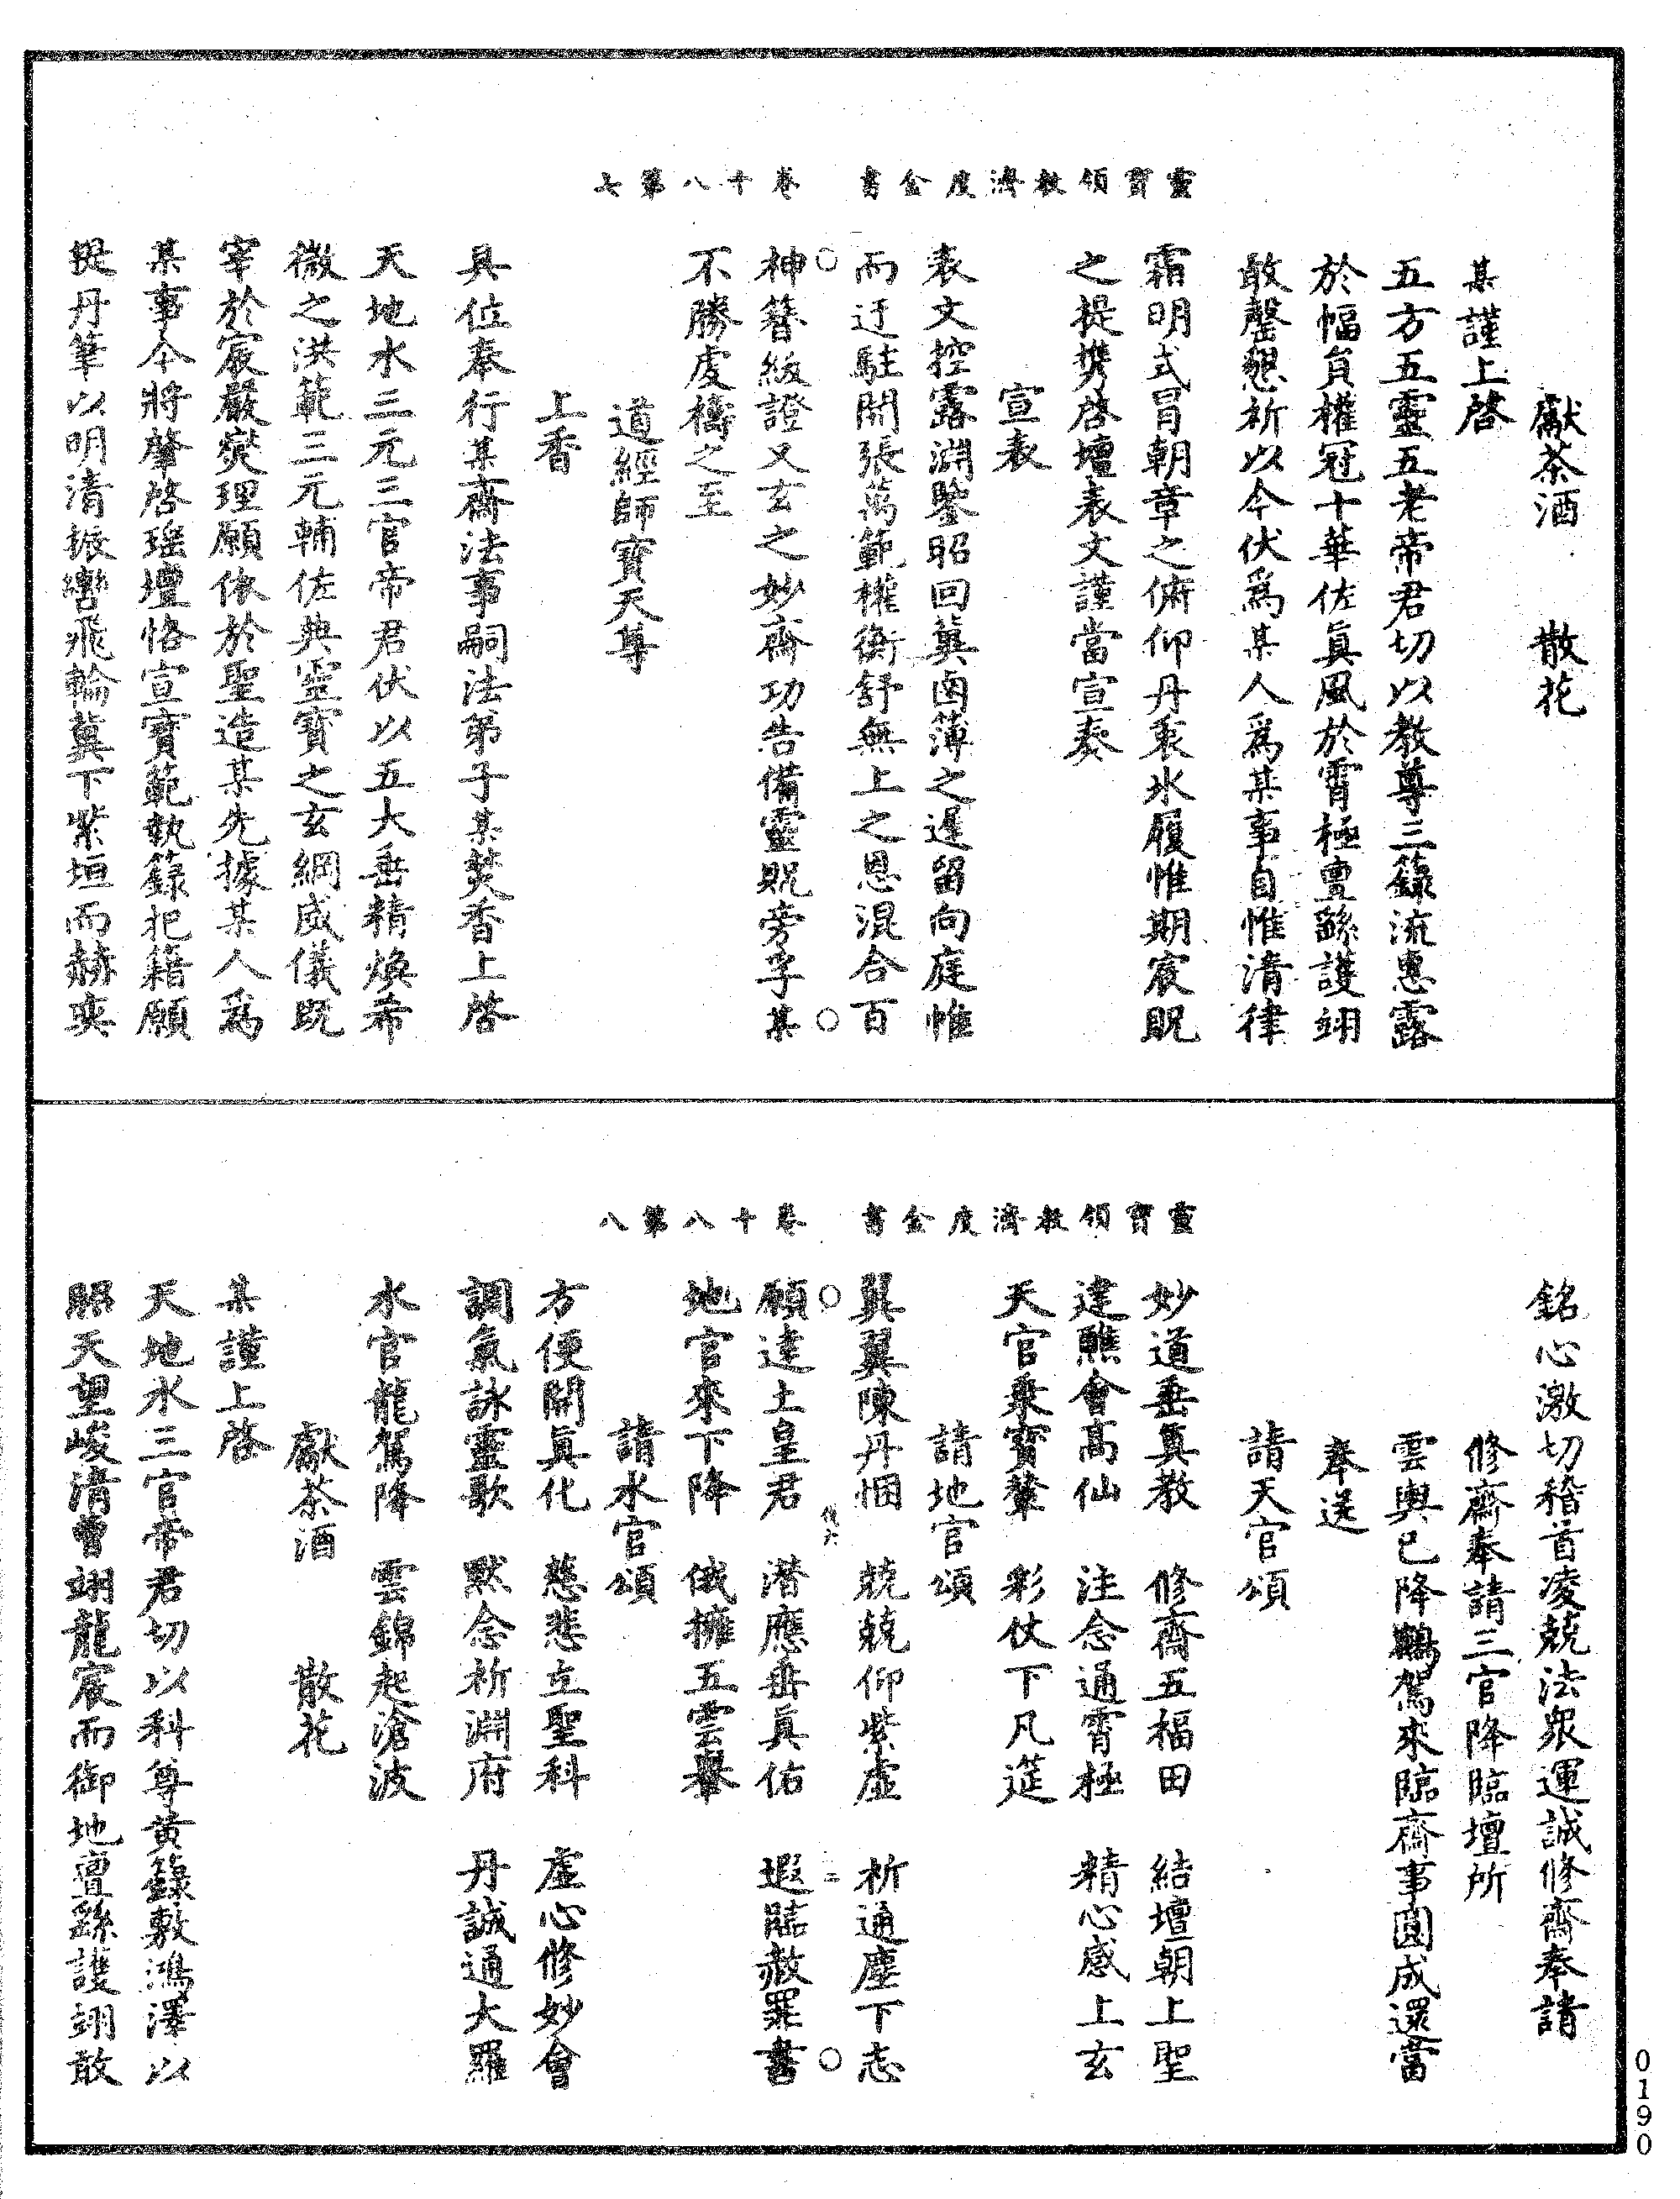 靈寶領教濟度金書　卷十八第七
獻茶酒　散花
某謹上啓
五方五靈五老帝君切以教尊三籙流惠露
於幅員權冠十華佐真風於霄極亶繇護翊
敢罄懇祈以今伏爲某人爲某事自惟清律
霜明式冒朝章之俯仰丹衷氷履惟期宸貺
之提携啓壇表文謹當宣奏
宣表
表文控露淵鑒昭回冀鹵薄之遅留向庭帷
而迂駐開張萬範權衡舒無上之恩混合百
神簪紱證又玄之妙齋功告備靈貺旁孚某
不勝虔禱之至
道經師寶天尊
上香
具位奉行某齋法事嗣法弟子某焚香上啓
天地水三元三官帝君伏以五大垂精煥希
微之洪範三元輔佐典靈寶之玄綱威儀既
宰於宸嚴爕理願依於聖造某先據某人爲
某事今將肇啓瑶壇恪宣寶範執籙把籍願
提丹筆以明清振轡飛輪冀下紫垣而赫奕
靈寶領教濟度金書　卷十八第八
銘心激切稽首凌兢法衆運誠修齋奉請
修齋奉請三官降臨壇所
雲輿已降鶴駕來臨齋事圓成還當
奉送
請天官頌
妙道垂真教　修齋五福田　結壇朝上聖
建醮會高仙　注念通霄極　精心感上玄
天官乗寳輦　彩仗下凡筵
請地官頌
翼翼陳丹悃　兢兢仰紫虛　析通塵下志
願達土皇君　潜應垂真佑　遐臨赦罪書
地官來下降　俄擁五雲轝
請水官頌
方便開真化　慈悲立聖科　虛心修妙會
調氣詠靈歌　默念析淵府　丹誠通大羅
水官龍駕降　雲錦起滄波
獻茶酒　散花
某謹上啓
天地水三官帝君切以科尊黄籙敷鴻澤以
昭天望峻清曹翊龍宸而御地亶繇護翊敢
0190